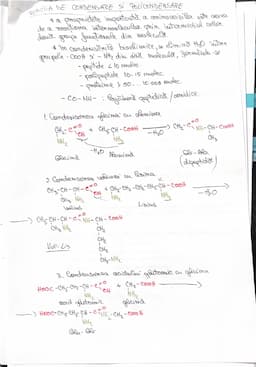 REACȚIA DE CONDENSARE ȘI POLICONDENSARE
* o proprietate importantă a aminoacizilor este aceea
de a reacționa intermolecular prin intermediul celor
două grupe funcționale din moleculă
* în condensările biochimice, se elimină H2O între
grupele -COOH și -NH2 din două molecule, formându-se
- peptide < 10 molec
- polipeptide 10-15 molec.
- proteine > 50 .. 10 000
- CO-NH- :
1. Condensarea glicinei cu alanina
CH2-C=O + CH2-CH-COOH → CH2-C=O NH-CH-COOH
NH2 OH NH2 -H2O NH2
-H2O
Glicină Alanină Gli-Ala
(dipeptidă)
2. Condensarea valinei cu lisina
CH3-CH-CH-C=O + CH2-CH2-CH2-CH2-CH-COOH →
CH3 NH2 OH NH2 NH2 -H2O
Valină Lisină
→ CH3-CH-CH-C=O NH-CH-COOH
CH3 NH2 CH2
CH2
Val-Lis CH2
CH2-NH2
3. Condensarea acidului glutamic cu glicina
HOOC-CH2-CH2-CH-C=O + CH2-COOH →
NH2 OH NH2
acid glutamic glicină
→ HOOC-CH2-CH2-CH-C=O NH-CH2-COOH
NH2
Glu-Gli